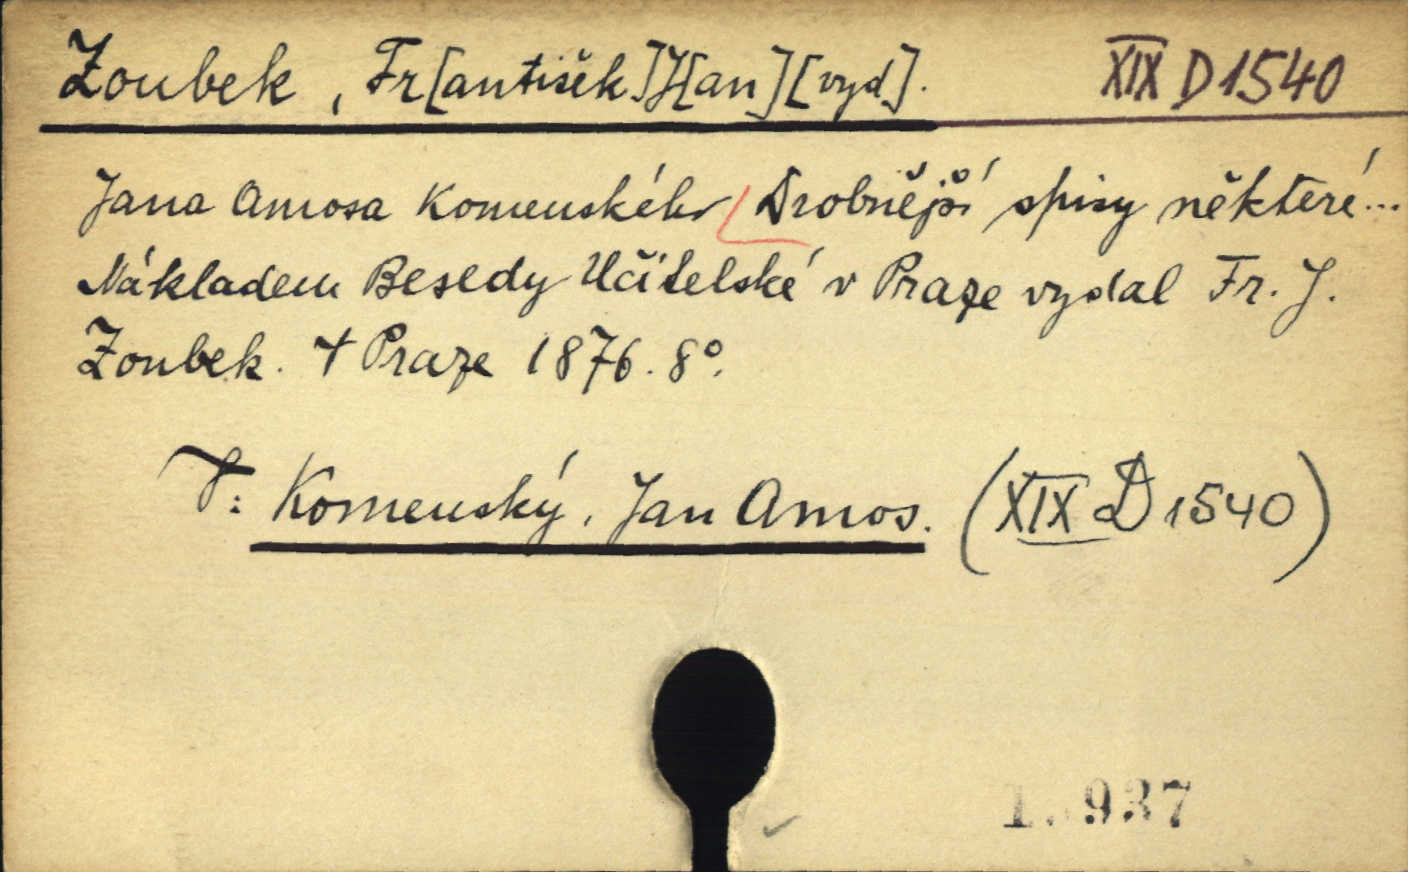 Zoubek, Fr[antišek]J[an][vyd]. XIX D 1540
Jana Amosa Komenského Drobnější spisy některé...
Nákladem Besedy Učitelské v Praze vydal Fr. J.
Zoubek. V Praze 1876. 8°.
V: Komenský, Jan Amos. (XIX D 1540)
937